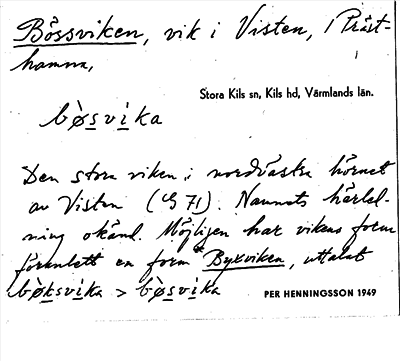 Bössviken, vik i Visten, i Präst-
hamna,
Stora Kils sn, Kils hd, Värmlands län.
bø̀svika
Den stora viken i nordvästra hörnet
av Visten (G 71). Namnets härled-
ning okänd. Möjligen har vikens form
föranlett en form *Byxviken, uttalat
bø̀ksvika > bø̀svika
PER HENNINGSSON 1949